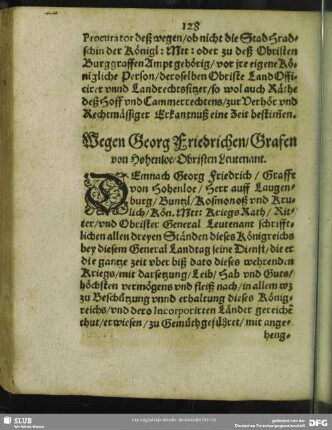 128
Procurator deß wegen/ob nicht die Stad Hrad-
schin der Königl: Mtt: oder zu deß Obristen
Burggraffen Ampt gehörig/vor jre eigene Kö-
nigliche Person/deroselben Obriste Land Offi-
cirer vnnd Landrechtsitzer/so wol auch Räthe
deß Hoff vnd Cammerrechtens/zur Verhör vnd
Rechtmässiger Erkantnuß eine Zeit bestimmen.
Wegen Georg Friedrichen/Grafen
von Hohenloe/Obristen Leutenant.
DEmnach Georg Friedrich/Graffe
von Hohenloe/Herr auff Laugen-
burg/Buntzl/Kosmonoß vnd Kru-
lich/Kön. Mett Kriegs Rath/Rit-
ter/vnd Obrister General Leutenant schrifft-
lichen allen dreyen Ständen dieses Königreichs
bey diesem General Landtag seine Dienst/die er
die gantze zeit vber biß dato dieses wehrenden
Kriegs/mit darsetzung/Leib/Hab vnd Guts/
höchsten vermögens vnd fleiß nach/in allem wz
zu Beschützung vnnd erhaltung dieses König-
reichs/vnd dero Incorporirten Länder gereicht
thut/erwiesen/zu Gemüth geführet/mit ange-
heng-
SLUB
DFG